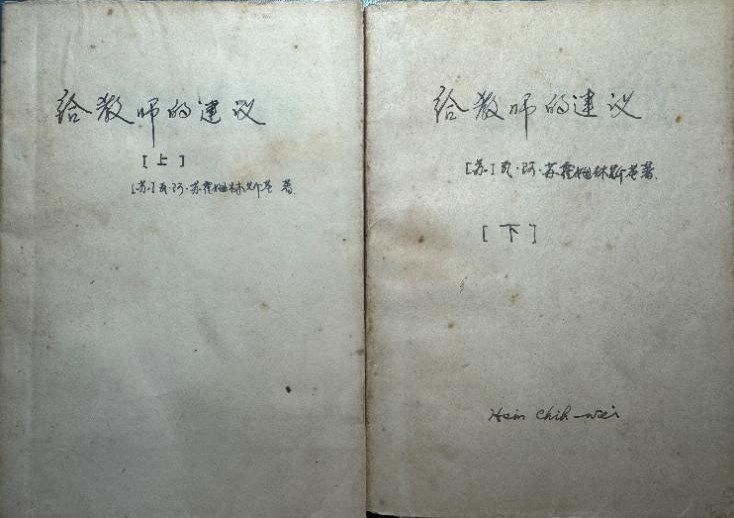 给教师的建议
[上]
[苏]瓦·阿·苏霍姆林斯基 著
给教师的建议
[苏]瓦·阿·苏霍姆林斯基著
[下]
Hsin Chih-wei